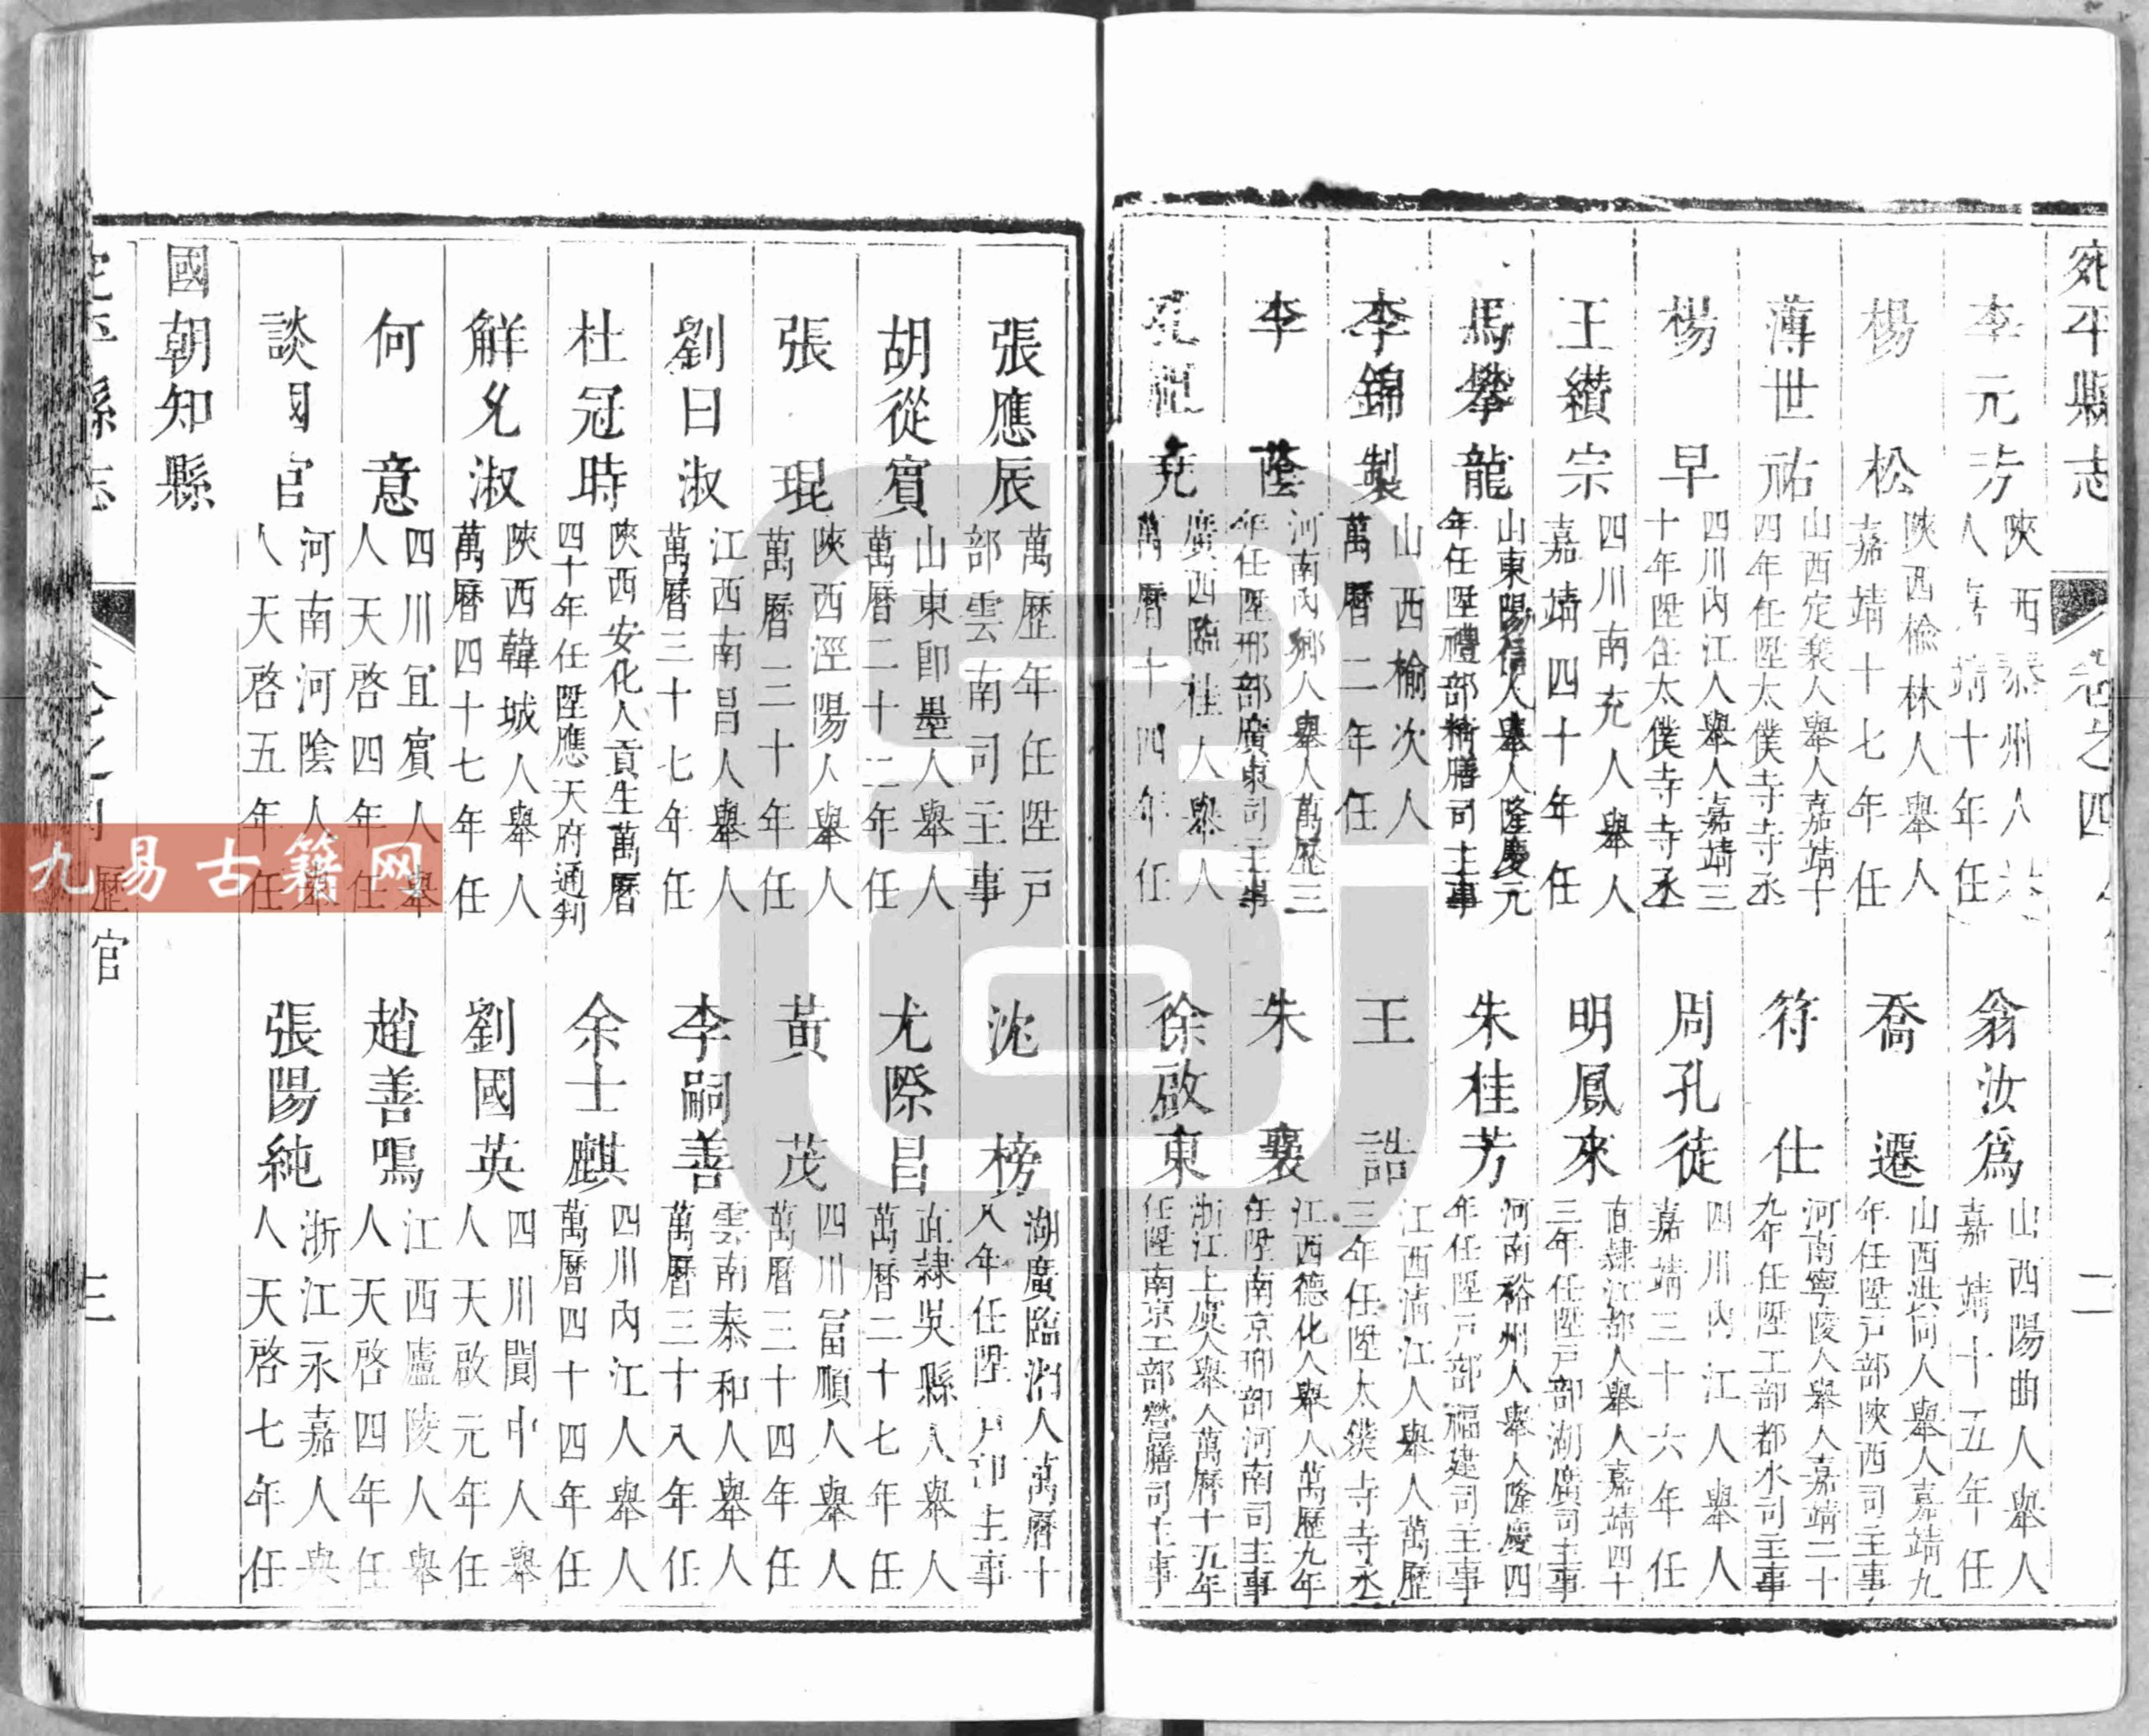 宛平縣志 卷之四 二
李元芳 陝西泰州人 人嘉靖十年任
翁汝為 山西陽曲人舉人 嘉靖十五年任
楊松 陝西榆林人舉人 嘉靖十七年任
喬遷 山西洪同人舉人嘉靖九 年任陞戶部陝西司主事
薄世祐 山西定襄人舉人嘉靖十 四年任陞太僕寺寺丞
符仕 河南寧陵人舉人嘉靖二十 九年任陞工部都水司主事
楊早 四川內江人舉人嘉靖三 十年陞任太僕寺寺丞
周孔徒 四川內江人舉人 嘉靖三十六年任
王纘宗 四川南充人舉人 嘉靖四十年任
明鳳來 直隸江都人舉人嘉靖四十 三年任陞戶部湖廣司主事
馬攀龍 山東陽信人舉人隆慶元 年任陞禮部精膳司主事
朱桂芳 河南裕州人舉人隆慶四 年任陞戶部福建司主事
李錦製 山西榆次人 萬曆二年任
王誥 江西清江人舉人萬歷 三年任陞太僕寺寺丞
李蔭 河南內鄉人舉人萬歷三 年任陞刑部廣東司主事
朱襄 江西德化人舉人萬歷九年 任陞南京刑部河南司主事
堯 廣西臨桂人舉人 萬曆十四年任
徐啟東 浙江上虞人舉人萬曆十五年 任陞南京工部營膳司主事
張應辰 萬歷年任陞戶 部雲南司主事
沈榜 湖廣臨湘人萬曆十 八年任陞戶部主事
胡從賓 山東即墨人舉人 萬曆二十二年任
尤際昌 直隸吳縣人舉人 萬曆二十七年任
張琨 陝西涇陽人舉人 萬曆三十年任
黃茂 四川富順人舉人 萬曆三十四年任
劉曰淑 江西南昌人舉人 萬曆三十七年任
李嗣善 雲南泰和人舉人 萬曆三十八年任
杜冠時 陝西安化人貢生萬曆 四十年任陞應天府通判
余士麒 四川內江人舉人 萬曆四十四年任
解允淑 陝西韓城人舉人 萬曆四十七年任
劉國英 四川閬中人舉 人天啟元年任
何意 四川宜賓人舉 人天啓四年任
趙善鳴 江西廬陵人舉 人天啓四年任
談國官 河南河陰人舉 人天啓五年任
張陽純 浙江永嘉人舉 人天啓七年任
國朝知縣
宛平縣志 卷之四 歷官 三
九易古籍网